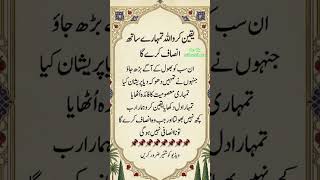 یقین کرو اللہ تمہارے ساتھ
انصاف کرے گا
ان سب کو بھول کے آگے بڑھ جاؤ
جنہوں نے تمہیں دھوکہ دیا پریشان کیا
تمہاری معصومیت کا فائدہ اُٹھایا
تمہارا دل دکھایا یقین کرو ہمارا رب
کچھ نہیں بھولتا اور جب وہ انصاف کرے گا
تو نا انصافی نہیں ہو گی
ویڈیو کو شئیر ضرور کریں